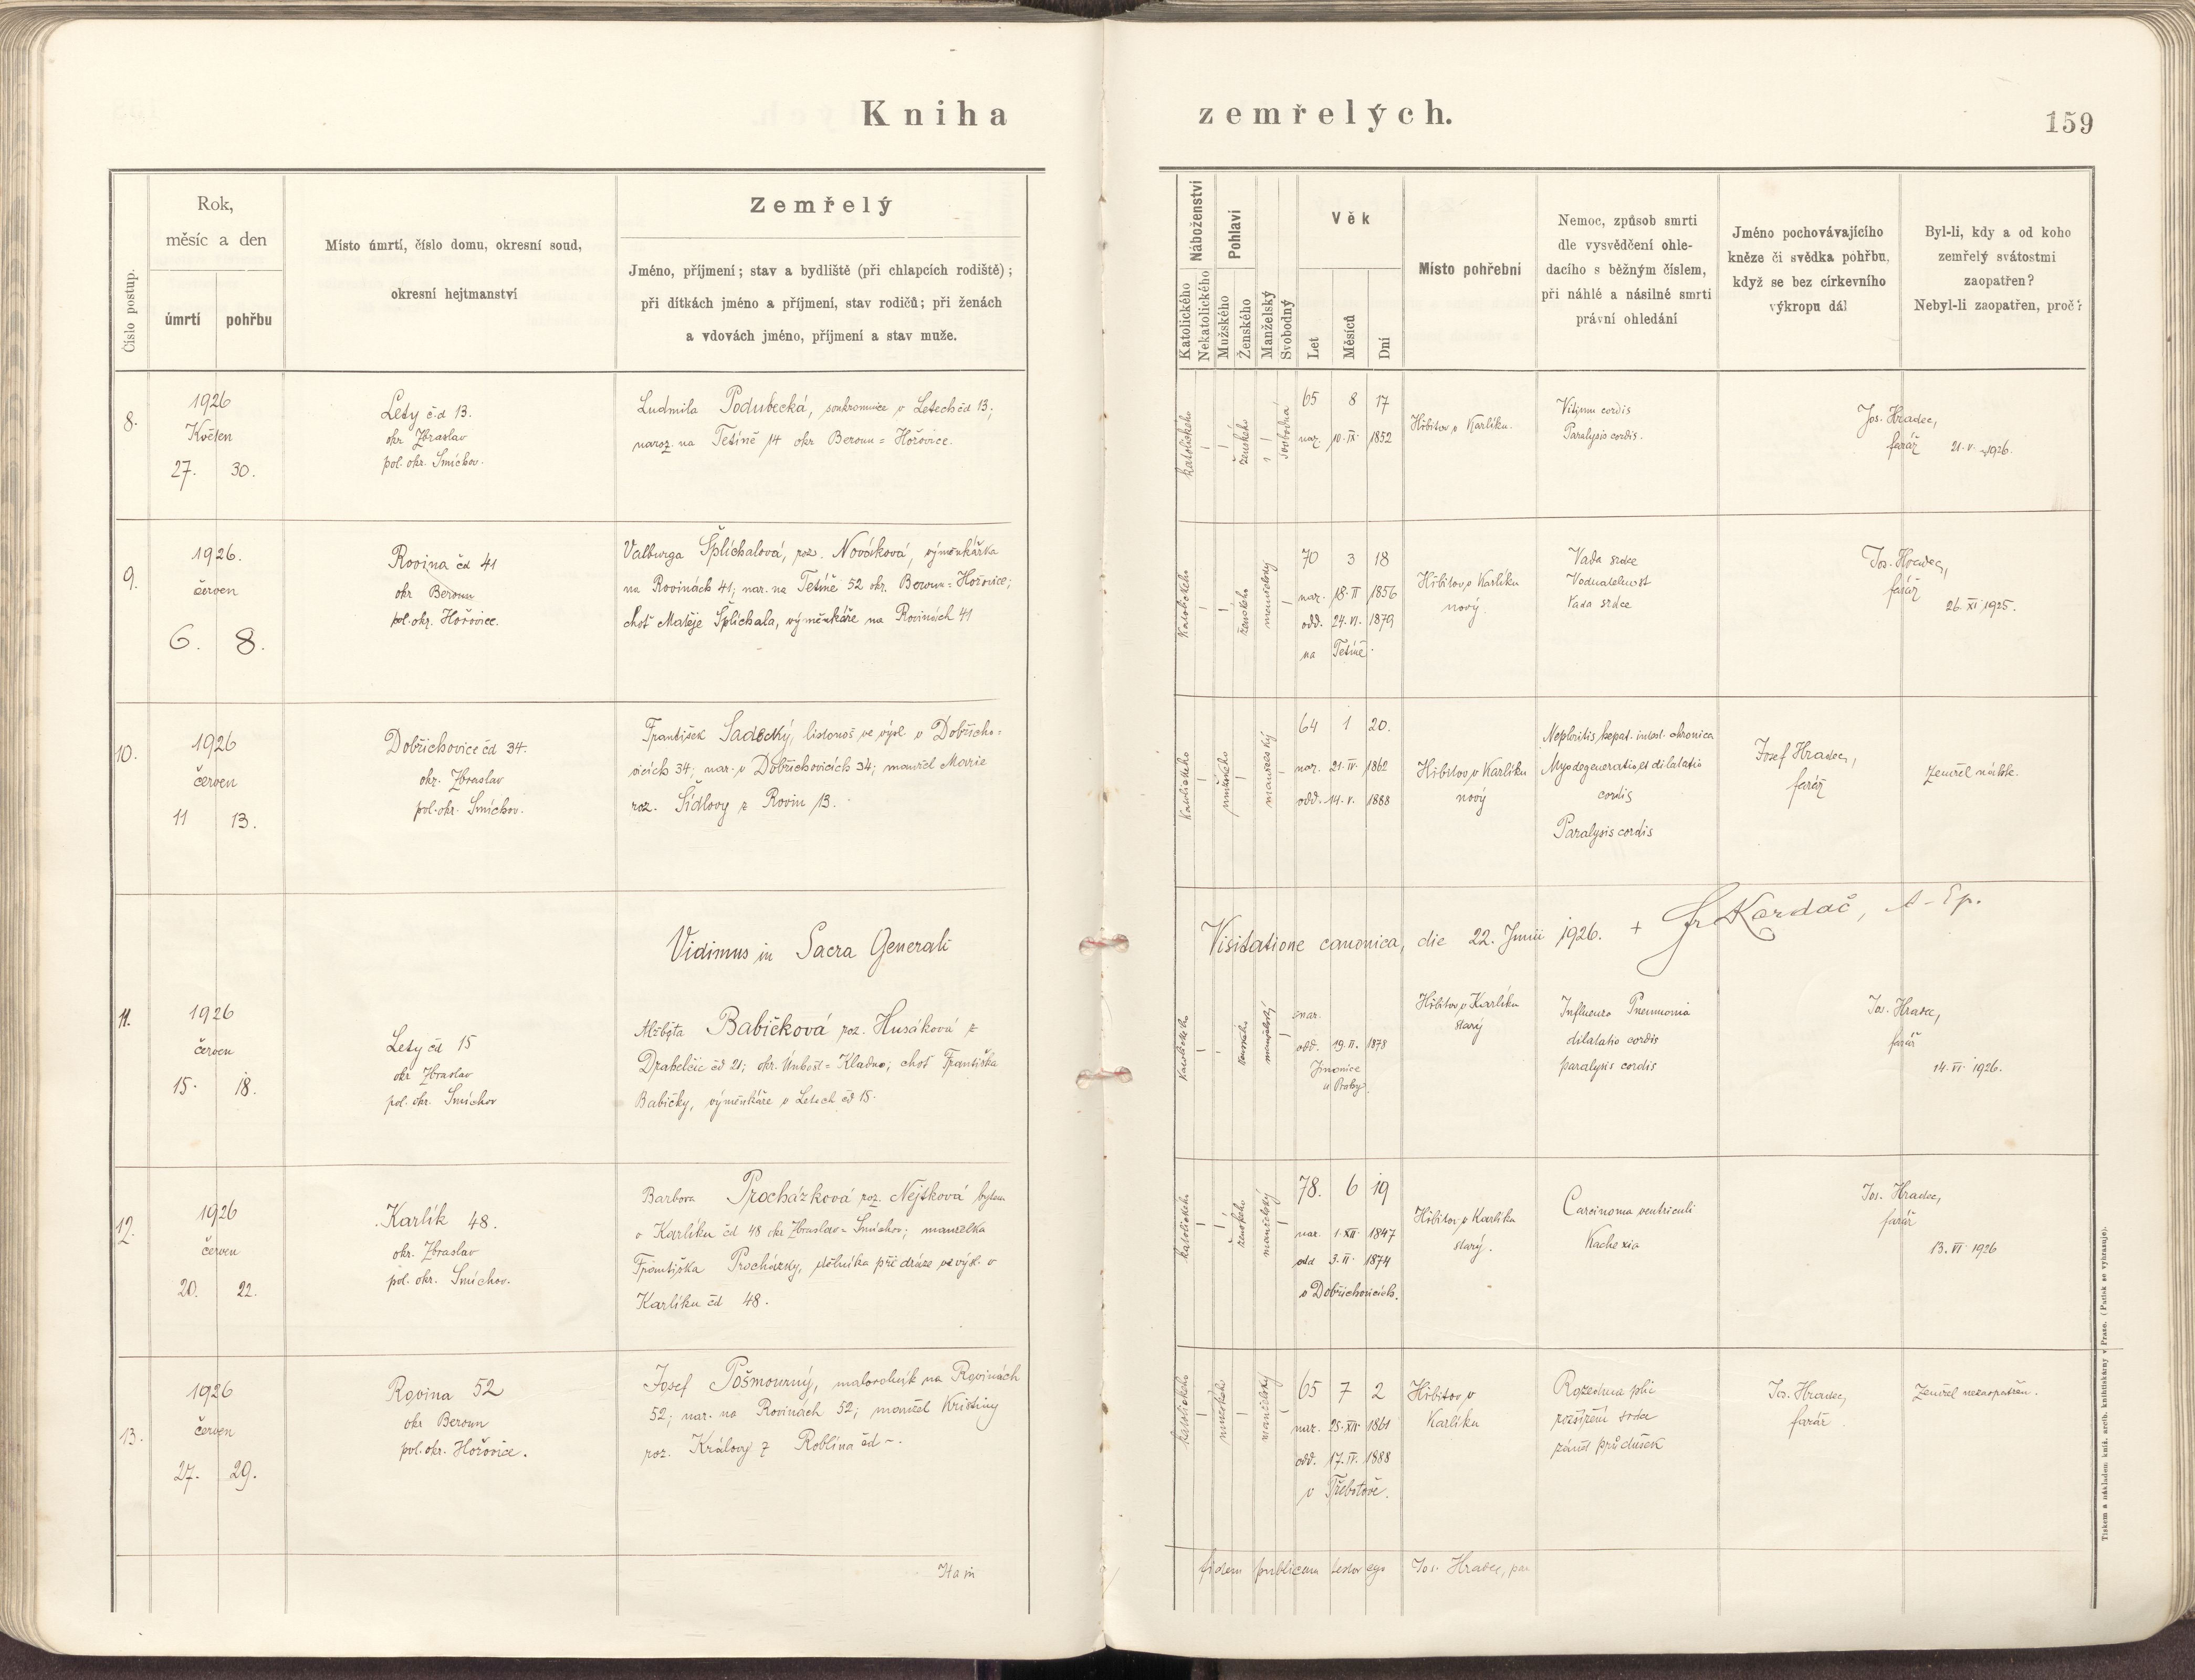 Kniha zemřelých.
159
Číslo postup.
Rok,
měsíc a den
úmrtí
pohřbu
Místo úmrtí, číslo domu, okresní soud,
okresní hejtmanství
Zemřelý
Jméno, příjmení; stav a bydliště (při chlapcích rodiště);
při dítkách jméno a příjmení, stav rodičů; při ženách
a vdovách jméno, příjmení a stav muže.
Náboženství
Katolického
Nekatolického
Pohlaví
Mužského
Ženského
Manželský
Svobodný
Věk
Let
Měsíců
Dní
Místo pohřební
Nemoc, způsob smrti
dle vysvědčení ohle-
dacího s běžným číslem,
při náhlé a násilné smrti
právní ohledání
Jméno pochovávajícího
kněze či svědka pohřbu,
když se bez církevního
výkropu dál
Byl-li, kdy a od koho
zemřelý svátostmi
zaopatřen?
Nebyl-li zaopatřen, proč?
8.
1926
Květen
27. 30.
Lety č.d 13.
okr Zbraslav
pol. okr. Smíchov.
Ludmila Podubecká, soukromnice v Letech čd 13;
naroz. na Tetíně 14 okr Beroun = Hořovice.
katolického
ženského
svobodná
65 8 17
nar. 10. IX. 1852
Hřbitov v Karlíku.
Vitium cordis
Paralysis cordis.
Jos. Hradec,
farář
21. V. 1926.
9.
1926.
červen
6. 8.
Rovina čd 41
okr Beroun
pol. okr. Hořovice.
Valburga Šplíchalová, roz. Nováková, výměnkářka
na Rovinách 41; nar. na Tetíně 52 okr. Beroun = Hořovice;
choť Matěje Šplíchala, výměnkáře na Rovinách 41
Katolického
ženského
manželský
70 3 18
nar. 18. II 1856
odd. 24. VI. 1879
na Tetíně.
Hřbitov v Karlíku
nový.
Vada srdce
Vodnatelnost
Vada srdce
Jos. Hradec,
farář
26. XI 1925.
10.
1926
červen
11 13.
Dobřichovice čd 34.
okr. Zbraslav
pol. okr. Smíchov.
František Sadecký, listonoš ve výsl. v Dobřicho=
vicích 34; nar. v Dobřichovicích 34; manžel Marie
roz. Šídlovy z Rovin 13.
Katolického
mužského
manželský
64 1 20.
nar. 21. IV. 1862
odd. 14. V. 1888
Hřbitov v Karlíku
nový
Nephritis, hepat. intest. chronica
Myodegeneratio et dilatatio
cordis
Paralysis cordis
Josef Hradec,
farář
zemřel náhle.
Vidimus in Sacra Generali Visitatione canonica, die 22. Junii 1926. + Fr Kordač, A-Ep.
11.
1926
červen
15. 18.
Lety čd 15
okr Zbraslav
pol. okr. Smíchov
Alžběta Babičková roz. Husáková z
Drahelčic čd 21; okr. Unhošť = Kladno; choť Františka
Babičky, výměnkáře v Letech čd 15.
Katolického
ženského
manželský
nar.
odd. 19. II. 1878
Jinonice
u Prahy.
Hřbitov v Karlíku
starý
Influenza Pneumonia
dilatatio cordis
paralysis cordis
Jos. Hradec,
farář
14. VI. 1926.
12.
1926
červen
20. 22.
Karlík 48.
okr. Zbraslav
pol. okr. Smíchov.
Barbora Procházková roz. Nejtková bytem
v Karlíku čd 48 okr Zbraslav = Smíchov; manželka
Františka Procházky, dělníka při dráze ve výsl. v
Karlíku čd 48.
katolického
ženského
manželský
78. 6 19
nar. 1. XII. 1847
odd 3. II. 1874
v Dobřichovicích.
Hřbitov v Karlíku
starý.
Carcinoma ventriculi
Kachexia
Jos. Hradec,
farář
13. VI 1926
13.
1926
červen
27. 29.
Rovina 52
okr Beroun
pol. okr. Hořovice.
Josef Pošmourný, malorolník na Rovinách
52; nar. na Rovinách 52; manžel Kristiny
roz. Královy z Roblína čd –.
katolického
mužského
manželský
65 7 2
nar. 25. XII. 1861
odd. 17. IV. 1888
v Třebotově.
Hřbitov v
Karlíku
Rozedma plic
rozšíření srdce
zánět průdušek
Jos. Hradec,
farář
zemřel nezaopatřen.
Ita in fidem publicam testor ego Jos. Hradec, par
Tiskem a nákladem kníž. arcib. knihtiskárny v Praze. (Patisk se vyhrazuje).